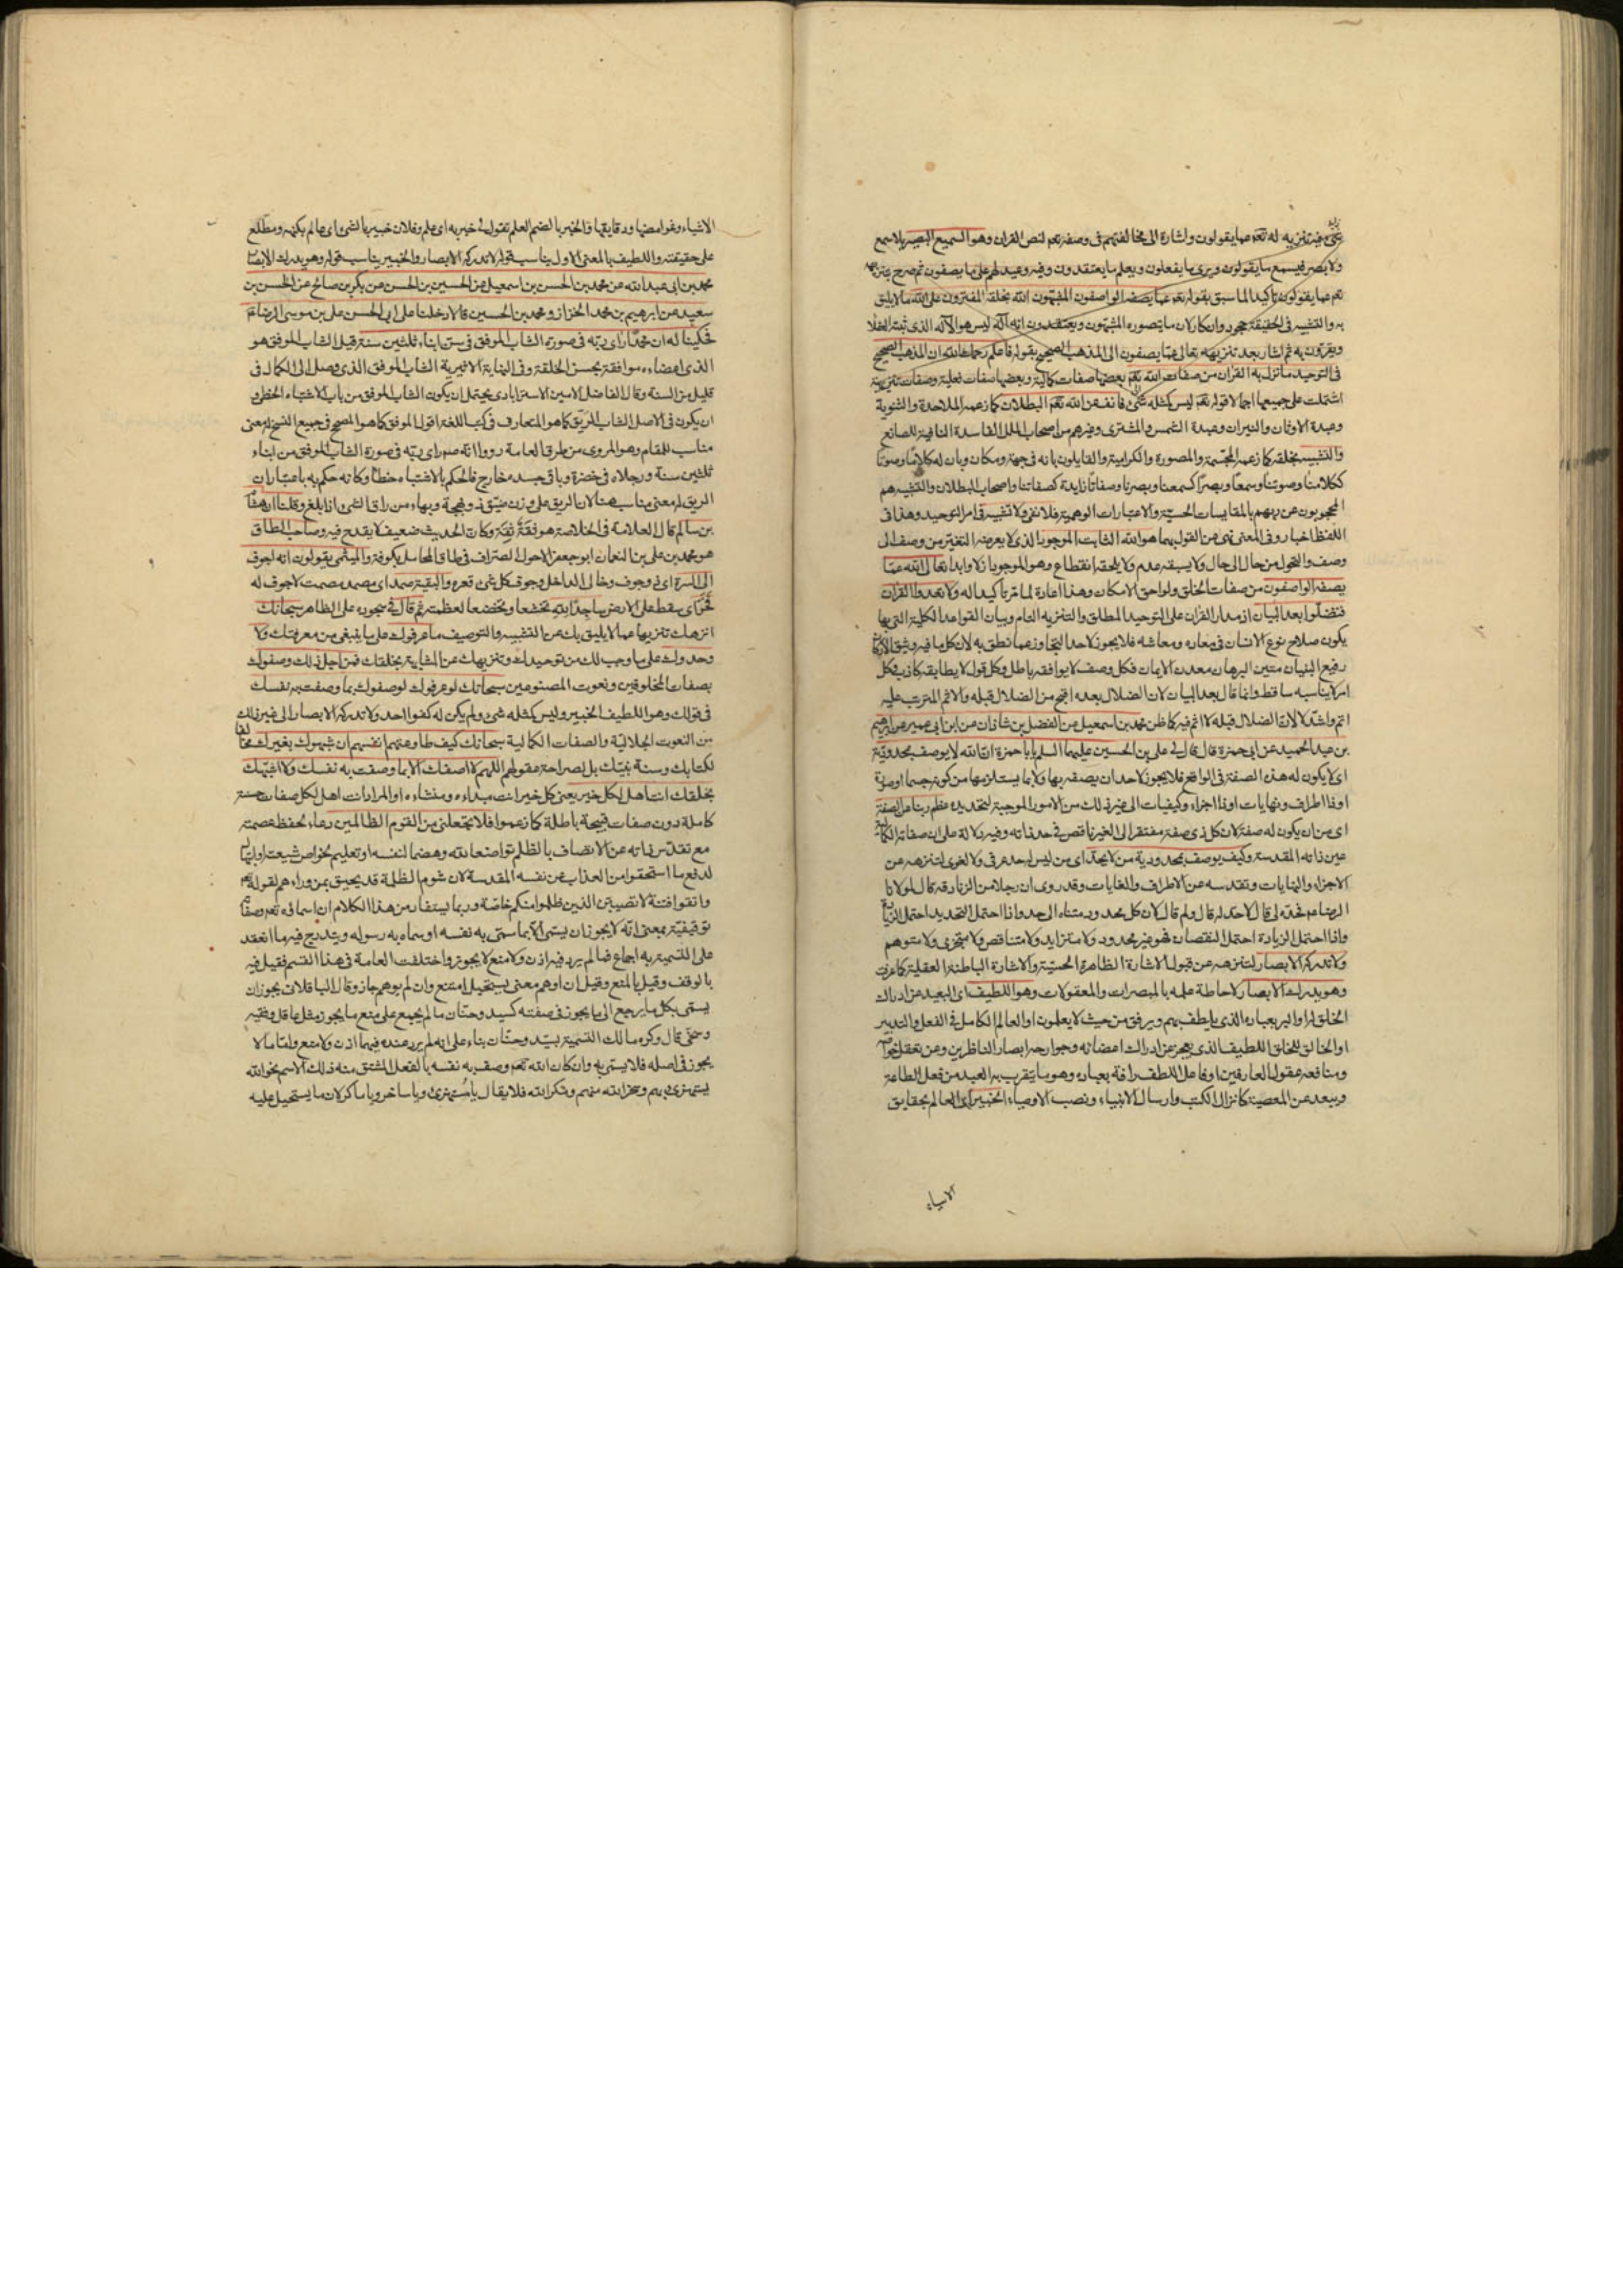 شئ فيه تنزيه له تعم عما يقولون واشارة الى مخالفتهم فى وصفه تعم لنص القران وهو السميع البصير بلا سمع
ولا بصر فيسمع ما يقولون ويرى ما يفعلون ويعلم ما يعتقدون وفيه وعيد لهم على ما يصفون ثم صرح
تعم عما يقولون تاكيدا لما سبق بقوله تعم عما يصفه الواصفون المشبّهون الله بخلقه المفترون على الله ما لا يليق
به والتشبيه فى الحقيقة جحود وانكار لان ما يتصوره المشبّهون ويعتقدون انه اله ليس هو الاله الذى
ويقرّون به ثم اشار بعد تنزيهه تعالى عمّا يصفون الى المذهب الصحيح بقوله فاعلم رحمك الله ان المذهب الصحيح
فى التوحيد ما نزل به القران من صفات الله تعم بعضها صفات كمالية وبعضها صفات فعلية وصفات تنزيهية
اشتملت على جميعها اجمالا قوله تعم ليس كمثله شئ فانف عن الله تعم البطلان كما زعمه الملاحدة والثنوية
وعبدة الاوثان والنيران وعبدة الشمس والمشترى وغيرهم من اصحاب الملل الفاسدة النافية للصانع
والتشبيه بخلقه كما زعمه المجسّمة والمصورة والكرامية والقايلون بانه فى جهة ومكان وبان له كلاما وصوتا
ككلامنا وصوتنا وسمعا وبصرا كسمعنا وبصرنا وصفاتا زايدة كصفاتنا واصحاب البطلان والتشبيه هم
المحجوبون عن ربهم بالمقايسات الحسيّة والاعتبارات الوهمية فلا نفى ولا تشبيه فى امر التوحيد وهذا فى
اللفظ اخبار وفى المعنى نهى عن القول بهما هو الله الثابت الموجود الذى لا يعرضه التغير من وصف الى
وصف والتحول من حال الى حال ولا يسبقه عدم ولا يلحقه انقطاع وهو الموجود ازلا وابدا تعالى الله عمّا
يصفه الواصفون من صفات الخلق ولواحق الامكان وهذا اعادة لما مر تاكيدا له ولا تعدوا القران
فتضلّوا بعد البيان اذ مدار القران على التوحيد المطلق والتنزيه التام وبيان القواعد الكلية التى بها
يكون صلاح نوع الانسان فى معاده ومعاشه فلا يجوز لاحد التجاوز عما نطق به لان كل ما فيه وثيق الاركان
رفيع البنيان متين البرهان معدن الايمان فكل وصف لا يوافقه باطل وكل قول لا يطابقه كاذب وكل
امر لا يناسبه ساقط وانما قال بعد البيان لان الضلال بعده اقبح من الضلال قبله والاثم المترتب عليه
اتم واشدّ لا لان الضلال قبله لا اثم فيه كما ظن محمد بن اسمعيل عن الفضل بن شاذان عن ابن ابى عمير عن ابرهيم
بن عبد الحميد عن ابى حمزة قال قال لى على بن الحسين عليهما السلم يا با حمزة ان الله لا يوصف بمحدودية
اى لا يكون له هذه الصفة فى الواقع فلا يجوز لاحد ان يصفه بها ولا بما يستلزمها من كونه جسما او صورة
او ذا اطراف ونهايات او ذا اجزاء وكيفيات الى غير ذلك من الامور الموجبة لتحديده عظم ربنا عن الصفة
اى من ان يكون له صفة لان كل ذى صفة مفتقر الى الغير ناقص فى حد ذاته وفيه دلالة على ان صفاته الكمالية
عين ذاته المقدسة وكيف يوصف بمحدودية من لا يحدّ اى من ليس له حد عرفى ولا لغوى لتنزهه عن
الاجزاء والنهايات وتقدسه عن الاطراف والغايات وقد روى ان رجلا من الزنادقة قال لمولانا
الرضا عم فحدّه لى قال لا حدّ له قال ولم قال لان كل محدود متناه الى حد واذا احتمل التحديد احتمل الزيادة
واذا احتمل الزيادة احتمل النقصان فهو غير محدود ولا متزايد ولا متناقص ولا متجزى ولا متوهم
ولا تدركه الابصار لتنزهه عن قبول الاشارة الظاهرة الحسيّة والاشارة الباطنة العقلية كما عرفت
وهو يدرك الابصار لاحاطة علمه بالمبصرات والمعقولات وهو اللطيف اى البعيد عن ادراك
الخلق له او البر بعباده الذى يلطف بهم ويرفق من حيث لا يعلمون او العالم الكامل فى الفعل والتدبير
او الخالق للخلق اللطيف الذى يعجز عن ادراك اعضائه وجوارحه ابصار الناظرين وعن تعقل خواصه
ومنافعه عقول العارفين او فاعل اللطف رافة بعباده وهو ما يتقرب به العبد من فعل الطاعة
ويبعد عن المعصية كانزال الكتب وارسال الانبياء ونصب الاوصياء الخبير اى العالم بحقايق
الاشياء
الاشياء وغوامضها ودقايقها والخبر بالضم العلم تقول لى خبر به اى علم وفلان خبير بالشئ اى عالم بكنهه ومطّلع
على حقيقته واللطيف بالمعنى الاول يناسب قوله لا تدركه الابصار والخبير يناسب قوله وهو يدرك الابصار
محمد بن ابى عبد الله عن محمد بن الحسن بن اسمعيل عن الحسين بن الحسن عن بكر بن صالح عن الحسن بن
سعيد عن ابرهيم بن محمد الخزاز ومحمد بن الحسين قالا دخلنا على ابى الحسن على بن موسى الرضا عم
فحكينا له ان محمدا راى ربّه فى صورة الشاب الموفق فى سن ابناء ثلثين سنة قيل الشاب الموفق هو
الذى اعضاءه موافقة بحسن الخلقة وفى النهاية الاثيرية الشاب الموفق الذى وصل الى الكمال فى
قليل من السنة وقال الفاضل الامين الاسترابادى يحتمل ان يكون الشاب الموفق من باب الاشتباه الخطى و
ان يكون فى الاصل الشاب الريّق كما هو المتعارف فى كتب اللغة اقول الموفق كما هو المصحح فى جميع النسخ له معنى
مناسب للمقام وهو المروى من طرق العامة رووا انّه صم راى ربّه فى صورة الشاب الموفق من ابناء
ثلثين سنة ورجلاه فى خضرة وباقى جسده خارج فالحكم بالاشتباه خطأ وكانه حكم به باعتبار ان
الريق له معنى يناسب هنا لان الريق على وزن ضيّق ذو بهجة وبهاء من راق الشئ اذا بلغ وقلنا ان هشام
بن سالم قال العلامة فى الخلاصة هو ثقةٌ ثِقَة وكان الحديث ضعيف لا يقدح فيه وصاحب الطاق
هو محمد بن على بن النعمان ابو جعفر الاحول الصراف فى طاق المحامل بكوفة والميثمى يقولون انه اجوف
الى السرة اى ذو جوف وخالى الداخل وجوف كل شئ قعره والبقية صمد اى مصمد مصمت لا جوف له
فخرّ اى سقط على الارض ساجدًا لله تخشعا وتخضعا لعظمته ثم قال فى سجوده على الظاهر سبحانك
انزهك تنزيها عما لا يليق بك من التشبيه والتوصيف ما عرفوك على ما ينبغى من معرفتك ولا
وحدوك على ما وجب لك من توحيدك وتنزيهك عن المشابهة بخلقك فمن اجل ذلك وصفوك
بصفات المخلوقين ونعوت المصنوعين سبحانك لو عرفوك لوصفوك بما وصفت به نفسك
فى قولك وهو اللطيف الخبير وليس كمثله شئ ولم يكن له كفوا احد ولا تدركه الابصار الى غير ذلك
من النعوت الجلاليّة والصفات الكمالية سبحانك كيف طاوعتهم انفسهم ان شبهوك بغيرك مخالفا
لكتابك وسنة نبيّك بل لصراحة عقولهم اللهم لا اصفك الا بما وصفت به نفسك ولا اشبّهك
بخلقك انت اهل لكل خير يعنى كل خير انت مبداءه ومنشاءه او المراد انت اهل لكل صفات حسنة
كاملة دون صفات قبيحة باطلة كما زعموا فلا تجعلنى من القوم الظالمين دعاء لحفظ عصمته
مع تقدّس ذاته عن الاتصاف بالظلم تواضعا لله وهضما لنفسه او تعليم لخواص شيعته او ابتهال
لدفع ما استحقوا من العذاب عن نفسه المقدسة لان شوم الظلمة قد يحيق بمن وراءهم لقوله تعم
واتقوا فتنة لا تصيبنّ الذين ظلموا منكم خاصّة وربما يستفاد من هذا الكلام ان اسماءه تعم وصفاته
توقيفيّة بمعنى انّه لا يجوز ان يسمى الا بما سمّى به نفسه او سماه به رسوله ويندرج فيه ما انعقد
على التسمية به اجماع فما لم يرد فيه اذن ولا منع لا يجوز واختلفت العامة فى هذا القسم فقيل فيه
بالوقف وقيل بالمنع وقيل ان اوهم معنى يستحيل امتنع وان لم يوهم جاز وقال الباقلانى يجوز ان
يسمّى بكل ما يرجع الى ما يجوز فى صفته كسيد وحنّان ما لم يجمع على منع ما يجوز مثل عاقل وفقيه
وحتى قال وكره مالك التسمية بسيّد وحنّان بناء على انه لم يرد عنده فيهما اذن ولا منع وامّا ما لا
يجوز فى اصله فلا يسمى به وان كان الله تعم وصف به نفسه بالفعل المشتق منه ذلك الاسم نحو الله
يستهزئ بهم وسخر الله منهم ومكر الله فلا يقال يا مستهزئ ويا ساخر ويا ماكر لان ما يستحيل عليه